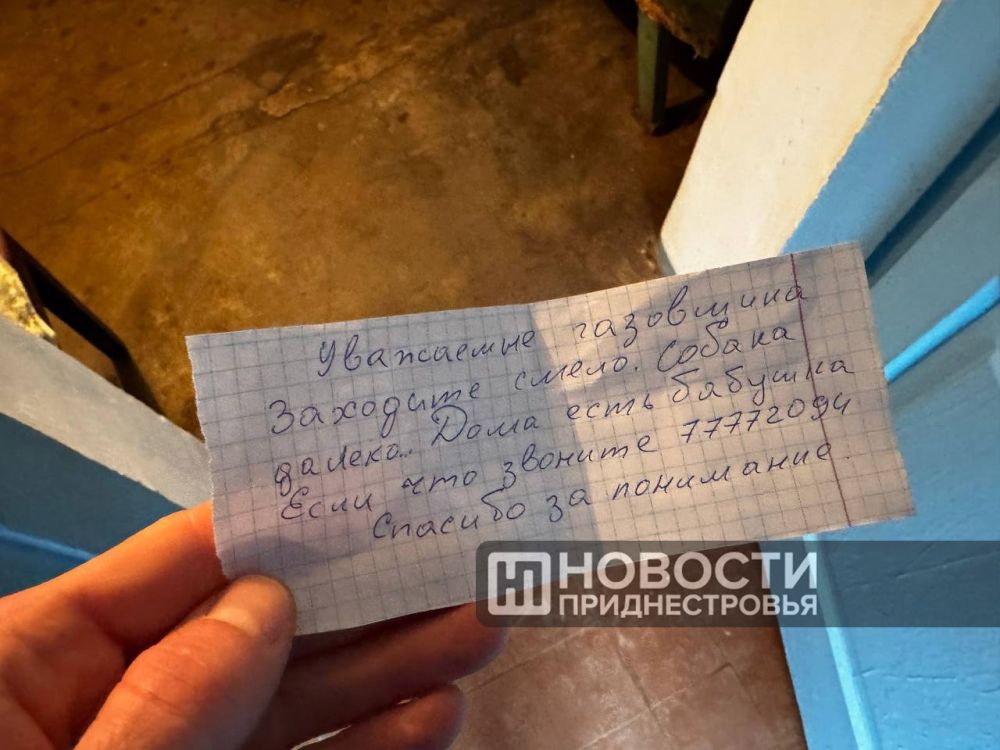 Уважаемые газовщика
Заходите смело. Собака
далеко. Дома есть бабушка
Если что звоните 77772094
Спасибо за понимание.
НОВОСТИ
ПРИДНЕСТРОВЬЯ